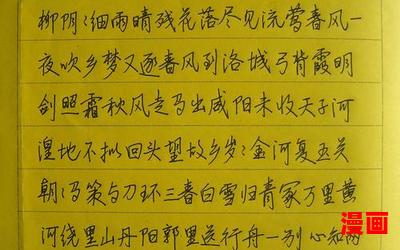 柳阴阴细雨晴残花落尽见流莺春风一
夜吹乡梦又逐春风到洛城弓背霞明
剑照霜秋风走马出咸阳未收天子河
湟地不拟回头望故乡岁岁金河复玉关
朝朝马策与刀环三春白雪归青冢万里黄
河绕黑山丹阳郭里送行舟一别心知两
漫画